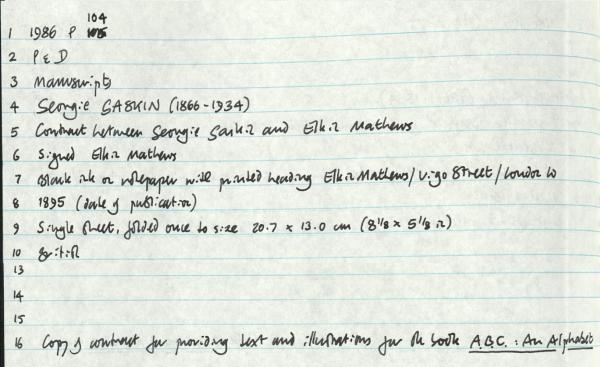 104
1 1986 P 105
2 P & D
3 Manuscripts
4 Georgie GASKIN (1866-1934)
5 Contract between Georgie Gaskin and Elkin Mathews
6 Signed Elkin Mathews
7 Black ink on notepaper with printed heading Elkin Mathews/Vigo Street/London W
8 1895 (date of publication)
9 Single sheet, folded once to size 20.7 x 13.0 cm (8 1/8 x 5 1/8 in)
10 British
13
14
15
16 Copy of contract for providing text and illustrations for the book A.B.C. : An Alphabet